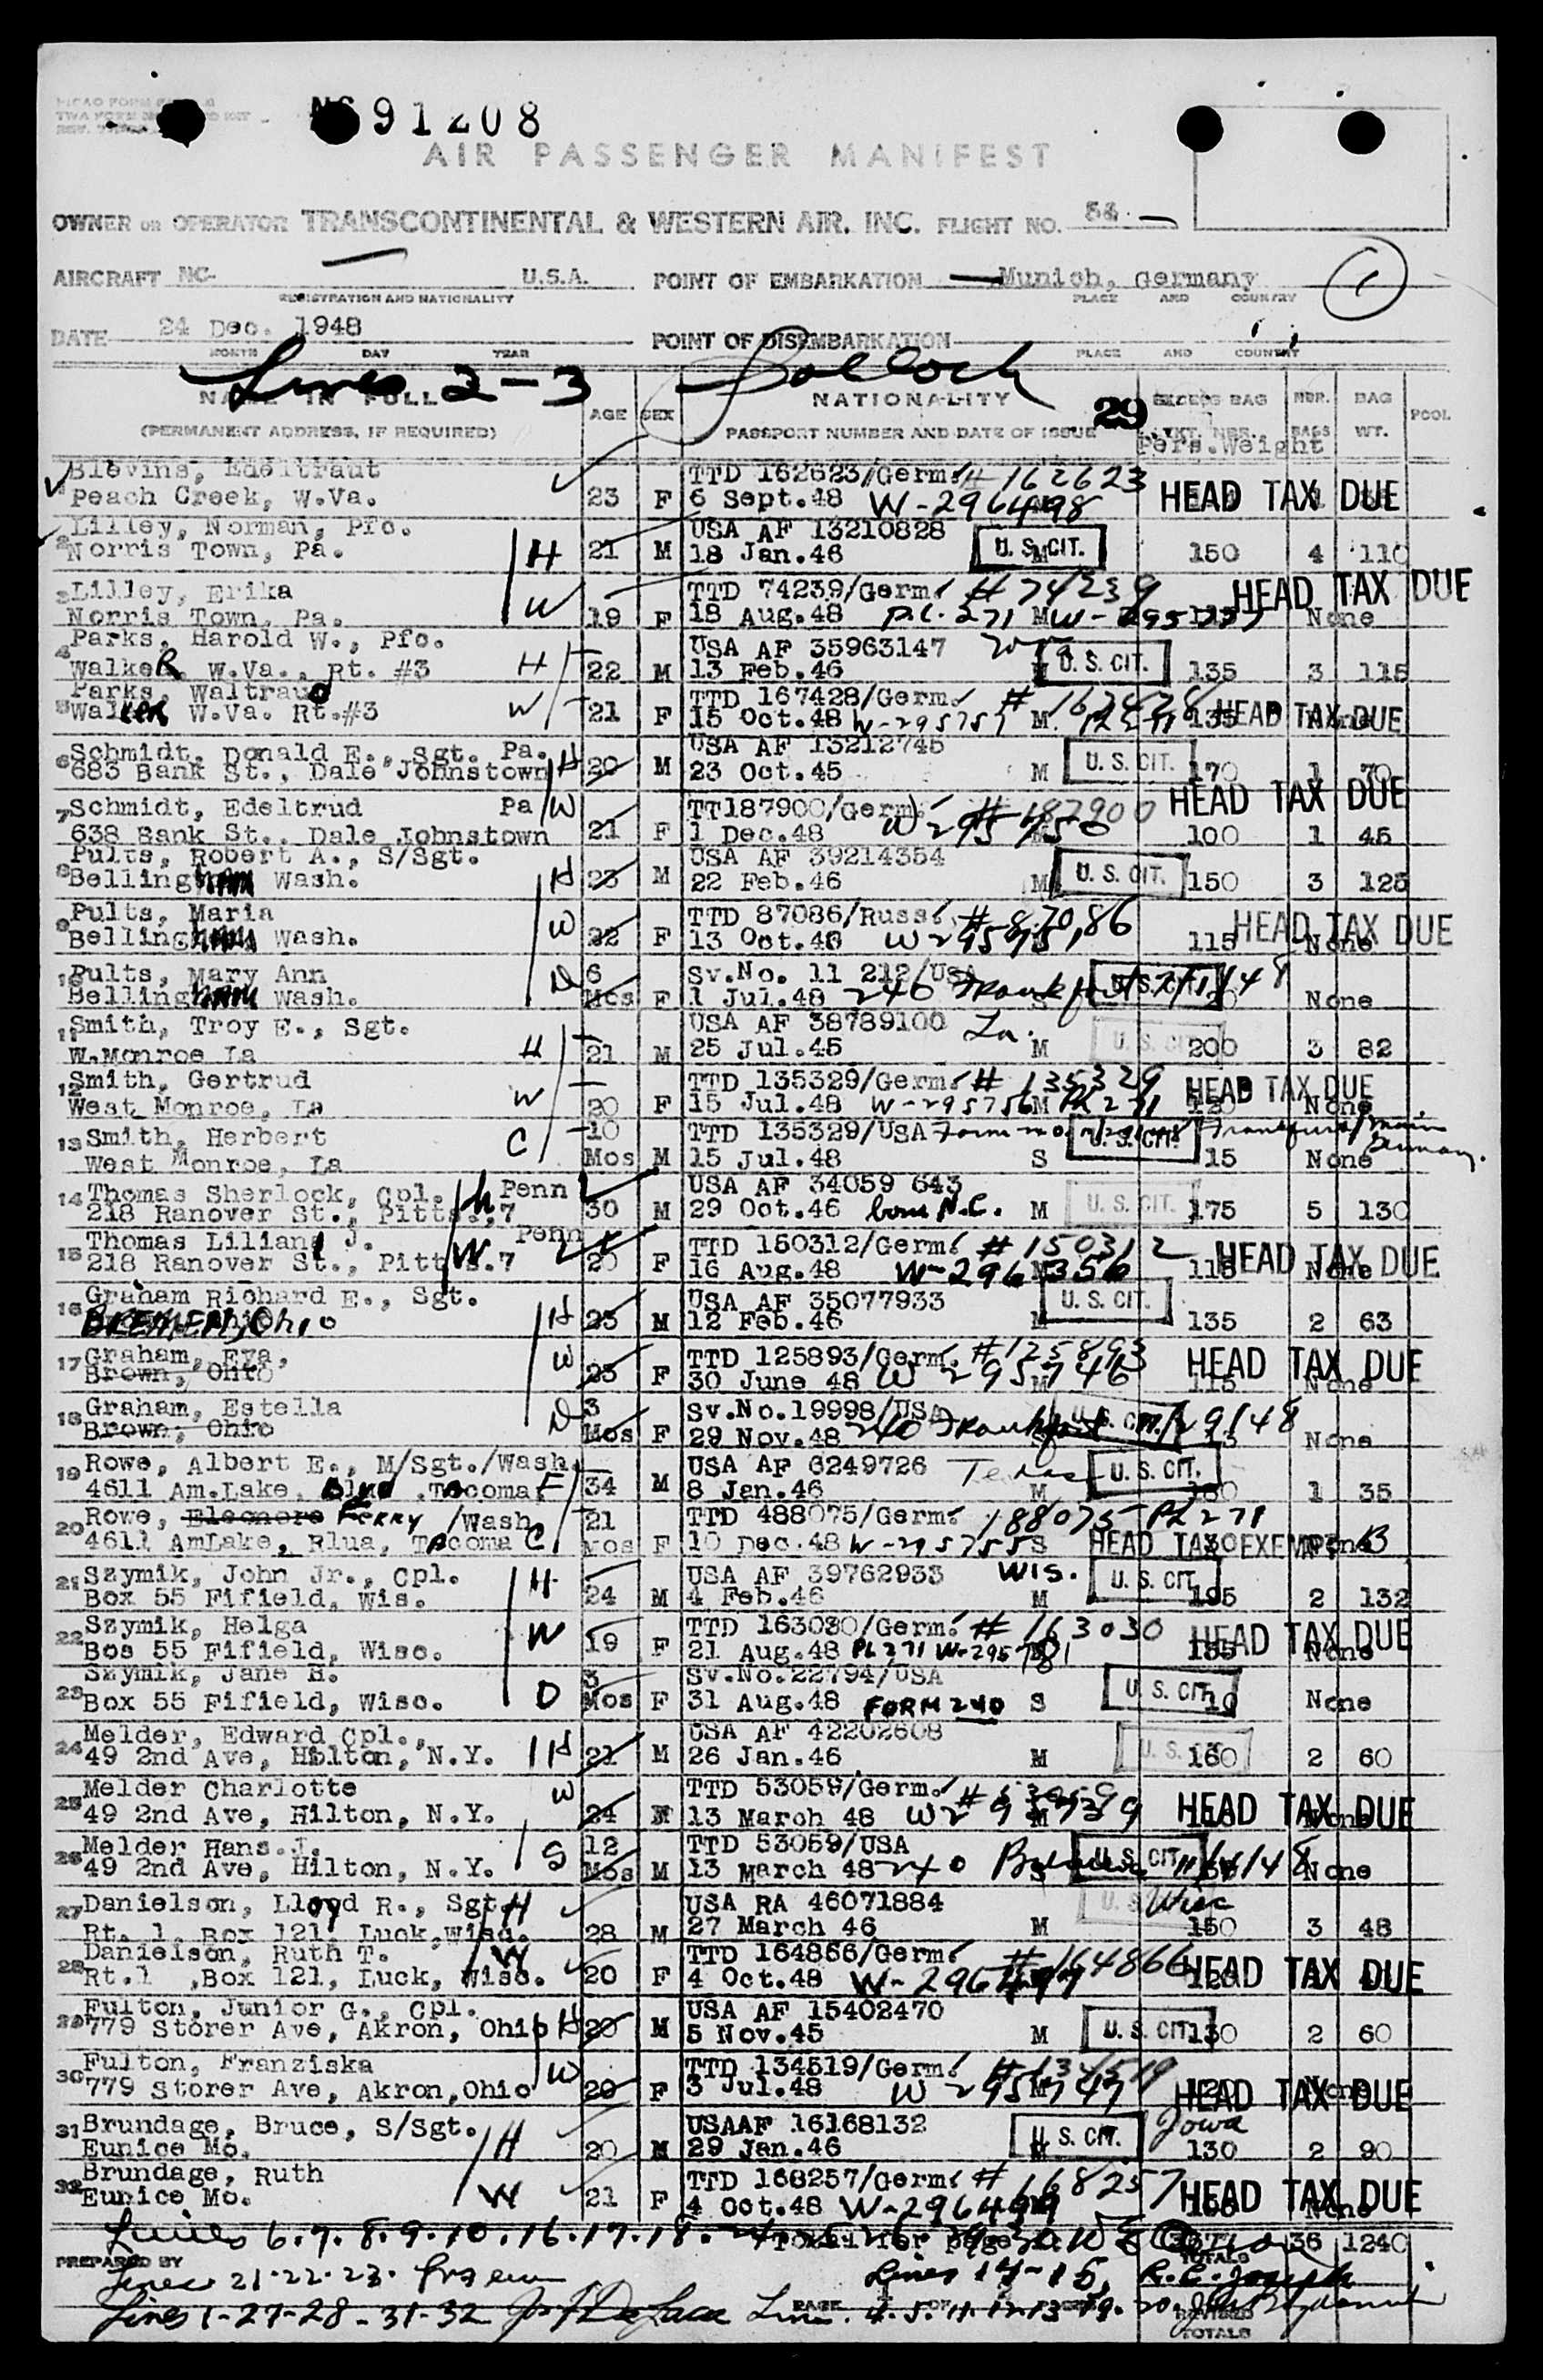 91208
AIR PASSENGER MANIFEST
OWNER OR OPERATOR TRANSCONTINENTAL & WESTERN AIR. INC. FLIGHT NO.
AIRCRAFT NC- U.S.A. POINT OF EMBARKATION Munich, Germany
REGISTRATION AND NATIONALITY PLACE AND COUNTRY
DATE 24 Dec. 1948 POINT OF DISEMBARKATION
MONTH DAY YEAR PLACE AND COUNTRY
Lines 2-3
NAME IN FULL AGE SEX NATIONALITY 29 EXCESS BAG NBR. BAG POOL
(PERMANENT ADDRESS, IF REQUIRED) PASSPORT NUMBER AND DATE OF ISSUE TKT. NBR. BAGS WT.
Pers.Weight
Blevins, Edeltraut TTD 162623/Germ. # 162623
Peach Creek, W.Va. 23 F 6 Sept.48 W-296498 HEAD TAX DUE
2 Lilley, Norman, Pfc. USA AF 13210828
Norris Town, Pa. H 21 M 18 Jan.46 M U.S. CIT. 150 4 110
3 Lilley, Erika TTD 74239/Germ. # 74239 HEAD TAX DUE
Norris Town, Pa. W 19 F 18 Aug.48 P.L. 271 M None
4 Parks, Harold W., Pfc. USA AF 35963147
WalkeR W.Va., Rt. #3 H 22 M 13 Feb.46 U.S. CIT. 135 3 115
5 Parks, Waltraud TTD 167428/Germ. # 167428
Walker W.Va. Rt.#3 W 21 F 15 Oct.48 W-295757 M 135 HEAD TAX DUE
6 Schmidt, Donald E., Sgt. Pa. USA AF 13212745
683 Bank St., Dale Johnstown H 20 M 23 Oct.45 M U.S. CIT. 170 1 70
7 Schmidt, Edeltrud Pa W TT187900/Germ. # 187900 HEAD TAX DUE
638 Bank St., Dale Johnstown 21 F 1 Dec.48 W 295750 100 1 45
8 Pults, Robert A., S/Sgt. USA AF 39214354
Bellingham Wash. H 23 M 22 Feb.46 M U.S. CIT. 150 3 125
9 Pults, Maria W TTD 87086/Russ. # 87086 HEAD TAX DUE
Bellingham Wash. 22 F 13 Oct.48 W 295751 115 None
10 Pults, Mary Ann D 6 Sv.No. 11 212/USA
Bellingham Wash. Mos F 1 Jul.48 240 Frankfurt U.S. CIT. None
11 Smith, Troy E., Sgt. USA AF 38789100 La.
W.Monroe La H 21 M 25 Jul.45 M U.S. CIT. 200 3 82
12 Smith, Gertrud W TTD 135329/Germ. # 135329 HEAD TAX DUE
West Monroe, La 20 F 15 Jul.48 W-295756 M PL 271 120 None
13 Smith, Herbert C 10 TTD 135329/USA U.S. CIT. Frankfurt/Main
West Monroe, La Mos M 15 Jul.48 S 15 None Germany.
14 Thomas Sherlock, Cpl. Penn USA AF 34059 643
218 Ranover St., Pitts.,7 H 30 M 29 Oct.46 born N.C. M U.S. CIT. 175 5 130
15 Thomas Liliana J. Penn TTD 150312/Germ. # 150312 HEAD TAX DUE
218 Ranover St., Pitts.7 W 20 F 16 Aug.48 W-296356 115 None
16 Graham Richard E., Sgt. USA AF 35077933
BREMEN, Ohio H 23 M 12 Feb.46 M U.S. CIT. 135 2 63
17 Graham, Eva, W TTD 125893/Germ. # 125893 HEAD TAX DUE
Brown, Ohio 23 F 30 June 48 W 295746 M 115 None
18 Graham, Estella D 3 Sv.No.19998/USA
Brown, Ohio Mos F 29 Nov.48 240 Frankfurt U.S. CIT. 11/29/48 None
19 Rowe, Albert E., M/Sgt./Wash. USA AF 6249726 Texas
4611 Am.Lake, Blvd, Tacoma F 34 M 8 Jan.46 M U.S. CIT. 1 35
20 Rowe, Eleonore FERRY /Wash 21 TTD 488075/Germ. 188075 PL 271
4611 AmLake, Blua, Tacoma C Mos F 10 Dec.48 W-295755 S HEAD TAX EXEMPT
21 Szymik, John Jr., Cpl. USA AF 39762933 WIS.
Box 55 Fifield, Wis. H 24 M 4 Feb.46 M U.S. CIT. 195 2 132
22 Szymik, Helga TTD 163030/Germ. # 163030 HEAD TAX DUE
Bos 55 Fifield, Wisc. W 19 F 21 Aug.48 PL 271 135 None
23 Szymik, Jane H. 3 Sv.No.22794/USA
Box 55 Fifield, Wisc. D Mos F 31 Aug.48 FORM 240 S U.S. CIT. 10 None
24 Melder, Edward Cpl., USA AF 42202608
49 2nd Ave, Hilton, N.Y. H 21 M 26 Jan.46 M U.S. 160 2 60
25 Melder Charlotte W TTD 53059/Germ. # 53059
49 2nd Ave, Hilton, N.Y. 24 13 March 48 W 295739 HEAD TAX DUE
26 Melder Hans.J. 12 TTD 53059/USA
49 2nd Ave, Hilton, N.Y. S Mos M 13 March 48 240 U.S. CIT. None
27 Danielson, Lloyd R., Sgt. H USA RA 46071884 U.S. Wisc
Rt. 1, Box 121, Luck, Wisc. 28 M 27 March 46 M 150 3 48
28 Danielson, Ruth T. W TTD 164866/Germ. # 164866
Rt.1 ,Box 121, Luck, Wisc. 20 F 4 Oct.48 W-296497 HEAD TAX DUE
29 Fulton, Junior G., Cpl. USA AF 15402470
779 Storer Ave, Akron, Ohio H 20 M 5 Nov.45 M U.S. CIT. 130 2 60
30 Fulton, Franziska W TTD 134519/Germ. # 134519
779 Storer Ave, Akron,Ohio 20 F 3 Jul.48 W 295747 HEAD TAX DUE
31 Brundage, Bruce, S/Sgt. USAAF 16168132 Iowa
Eunice Mo. H 20 M 29 Jan.46 U.S. CIT. 130 2 90
32 Brundage, Ruth TTD 168257/Germ. # 168257
Eunice Mo. W 21 F 4 Oct.48 W-296499 HEAD TAX DUE
Lines 6.7.8.9.10.16.17.18. Total for page 36 1240
PREPARED BY TOTALS
Lines 21-22-23. Lines 14-15, R.C. Joseph
Lines 1-27-28-31-32 Line. 4.5.11.12.13.19.20.
PAGE OF REVISED
TOTALS